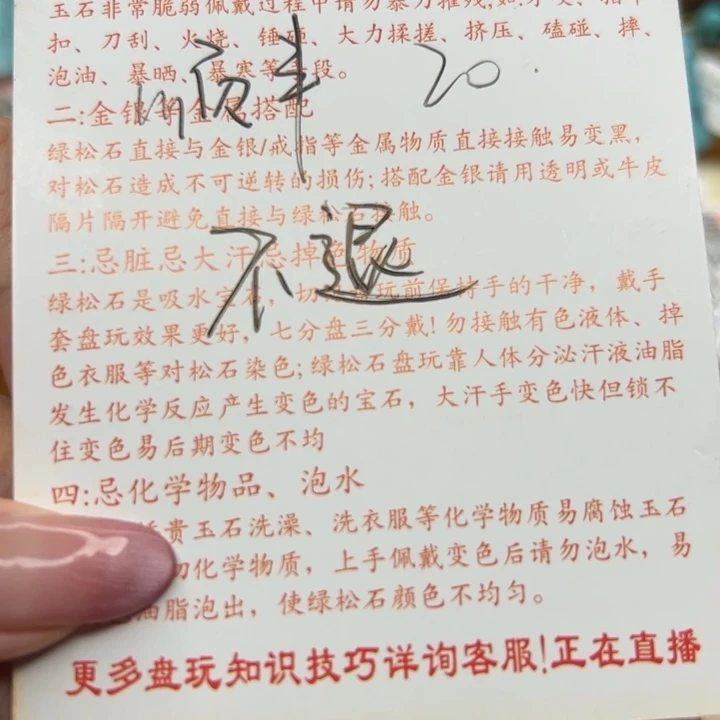 玉石非常脆弱佩戴过程中请勿暴力摧残,如:
扣、刀刮、火烧、锤砸、大力揉搓、挤压、磕碰、摔、
泡油、暴晒、暴寒等手段。
20
二:金银等金属搭配
绿松石直接与金银/戒指等金属物质直接接触易变黑,
对松石造成不可逆转的损伤;搭配金银请用透明或牛皮
隔片隔开避免直接与绿松石接触。
不退
三:忌脏忌大汗忌掉色物质
绿松石是吸水宝石,切 玩前保持手的干净,戴手
套盘玩效果更好,七分盘三分戴!勿接触有色液体、掉
色衣服等对松石染色;绿松石盘玩靠人体分泌汗液油脂
发生化学反应产生变色的宝石,大汗手变色快但锁不
住变色易后期变色不均
四:忌化学物品、泡水
贵玉石洗澡、洗衣服等化学物质易腐蚀玉石
化学物质,上手佩戴变色后请勿泡水,易
油脂泡出,使绿松石颜色不均匀。
更多盘玩知识技巧详询客服!正在直播